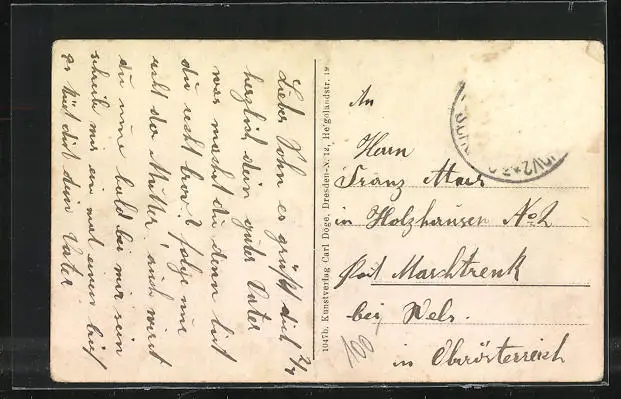 2/4
Lieber Sohn es grüßt dich
herzlich dein guter Vater
was machst du denn bist
du recht brav? folge nur
recht der Mutter, auch wirst
du nun bald bei mir sein
schreib mir ein mal einen brief
es küst dich dein Vater
1047b. Kunstverlag Carl Döge, Dresden-N. 12, Helgolandstr. 19
An
Herrn
Franz
in Holzhausen No 2
Post Marchtrenk
bei Wels.
in Oberösterreich